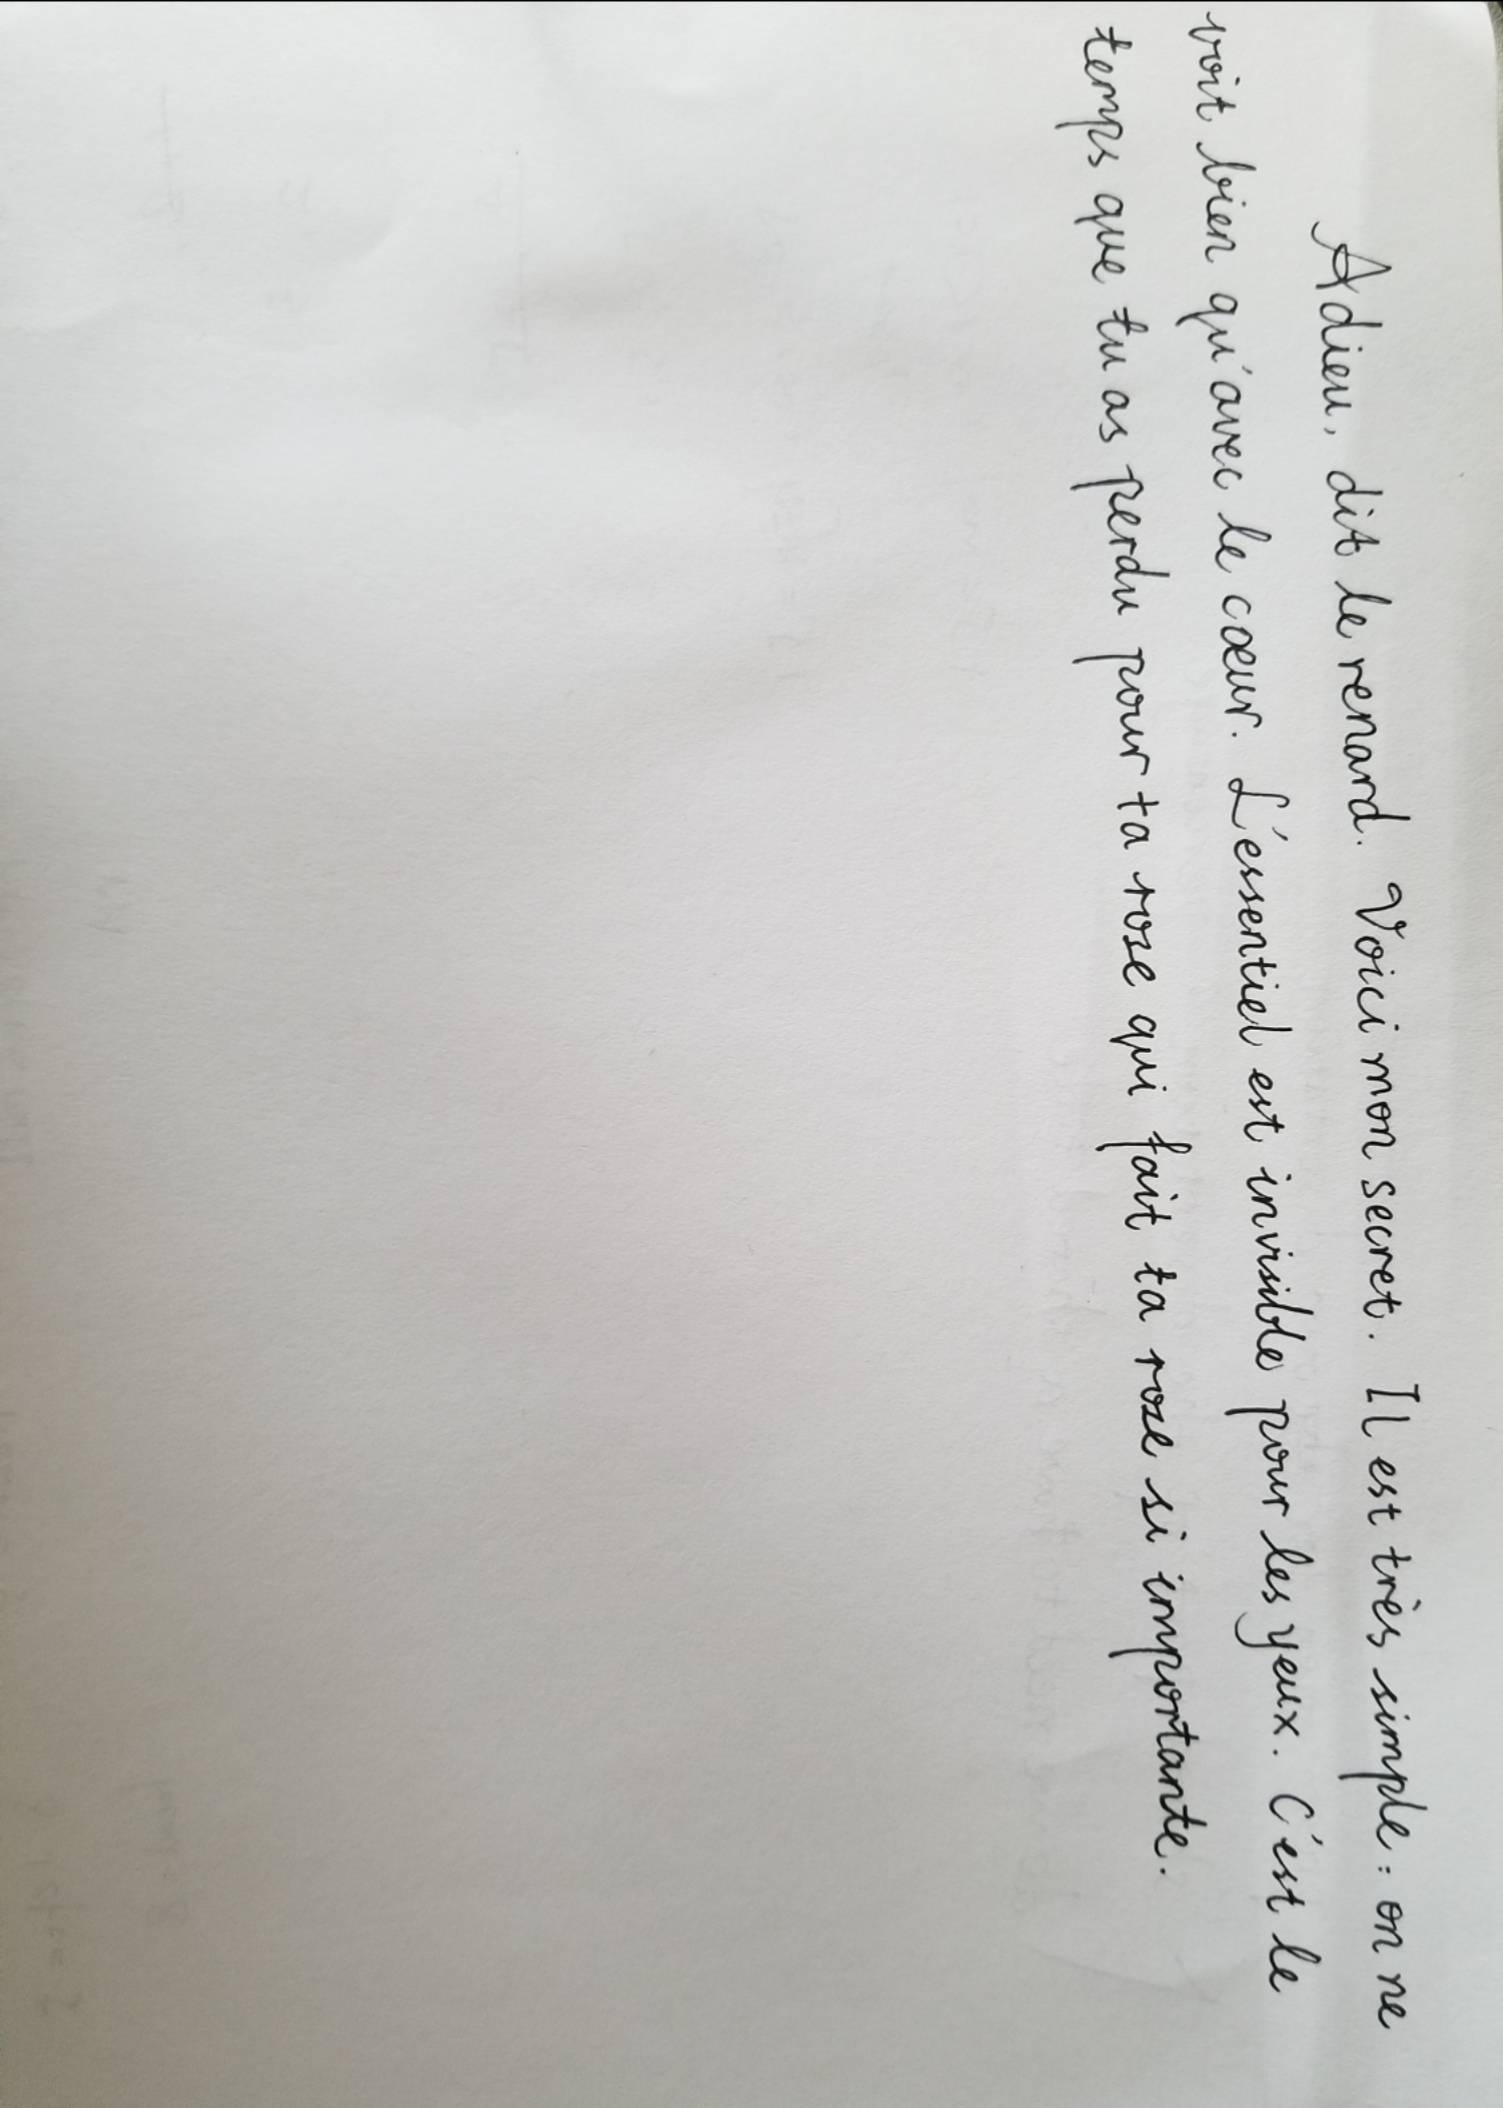 Adieu, dit le renard. Voici mon secret. Il est très simple : on ne
voit bien qu'avec le cœur. L'éssentiel est invisible pour les yeux. C'est le
temps que tu as perdu pour ta rose qui fait ta rose si importante.